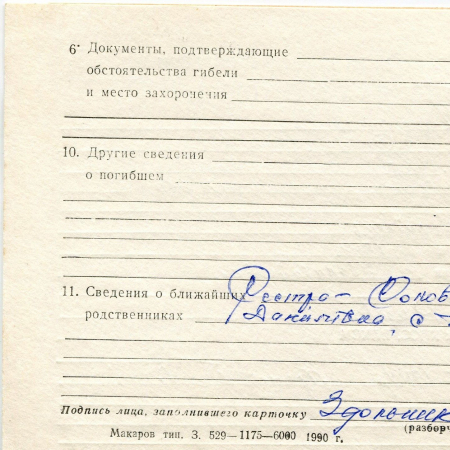 6· Документы, подтверждающие
обстоятельства гибели
и место захоронения
10. Другие сведения
о погибшем
11. Сведения о ближайших
родственниках
Сестра –
Подпись лица, заполнившего карточку
(разборч
Макаров тип. З. 529—1175—6000 1990 г.